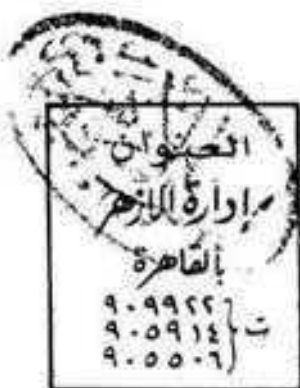 العنوان
إدارة الأزهر
بالقاهرة
ت { ٩٠٩٩٢٢
٩٠٥٩١٤
٩٠٥٥٠٦